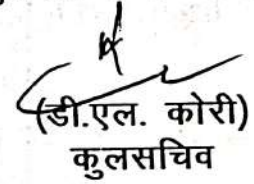 (डी.एल. कोरी)
कुलसचिव